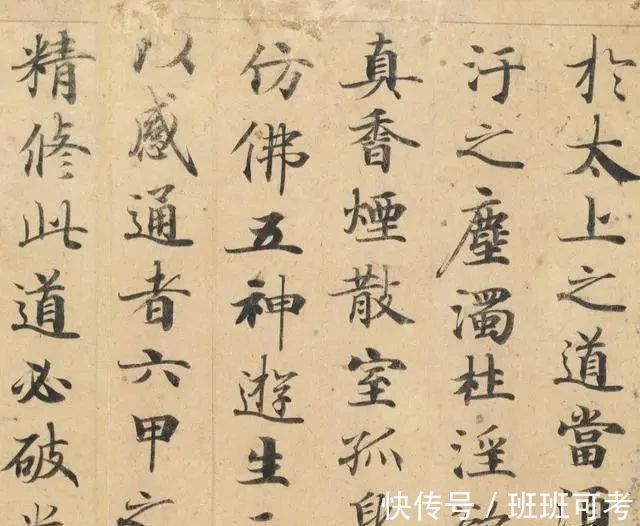 於太上之道當
汙之塵濁柱淫
真香煙散室孤
仿佛五神遊生
以感通者六甲之
精修此道必破
快传号 / 班班可考